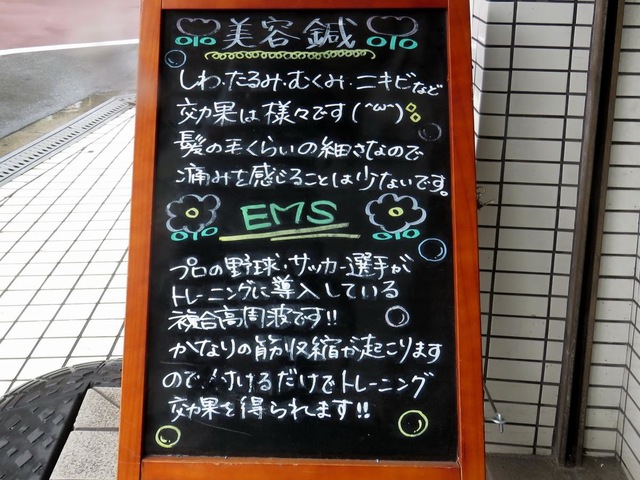 美容鍼
しわ・たるみ・むくみ・ニキビなど
効果は様々です(^ω^)
髪の毛くらいの細さなので
痛みを感じることは少ないです。
EMS
プロの野球・サッカー選手が
トレーニングに導入している
複合高周波です!!
かなりの筋収縮が起こります
ので、付けるだけでトレーニング
効果を得られます!!